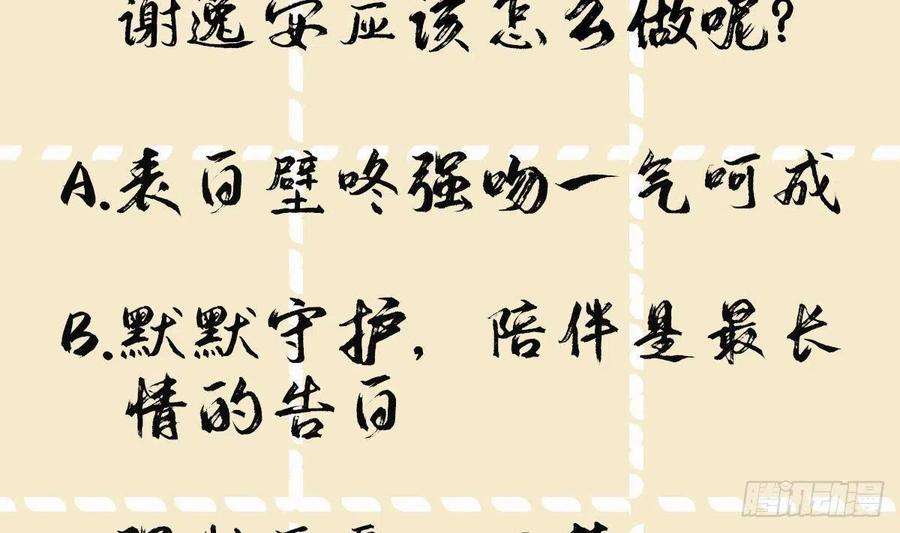 谢逸安应该怎么做呢？
A.表白壁咚强吻一气呵成
B.默默守护，陪伴是最长
情的告白
腾讯动漫